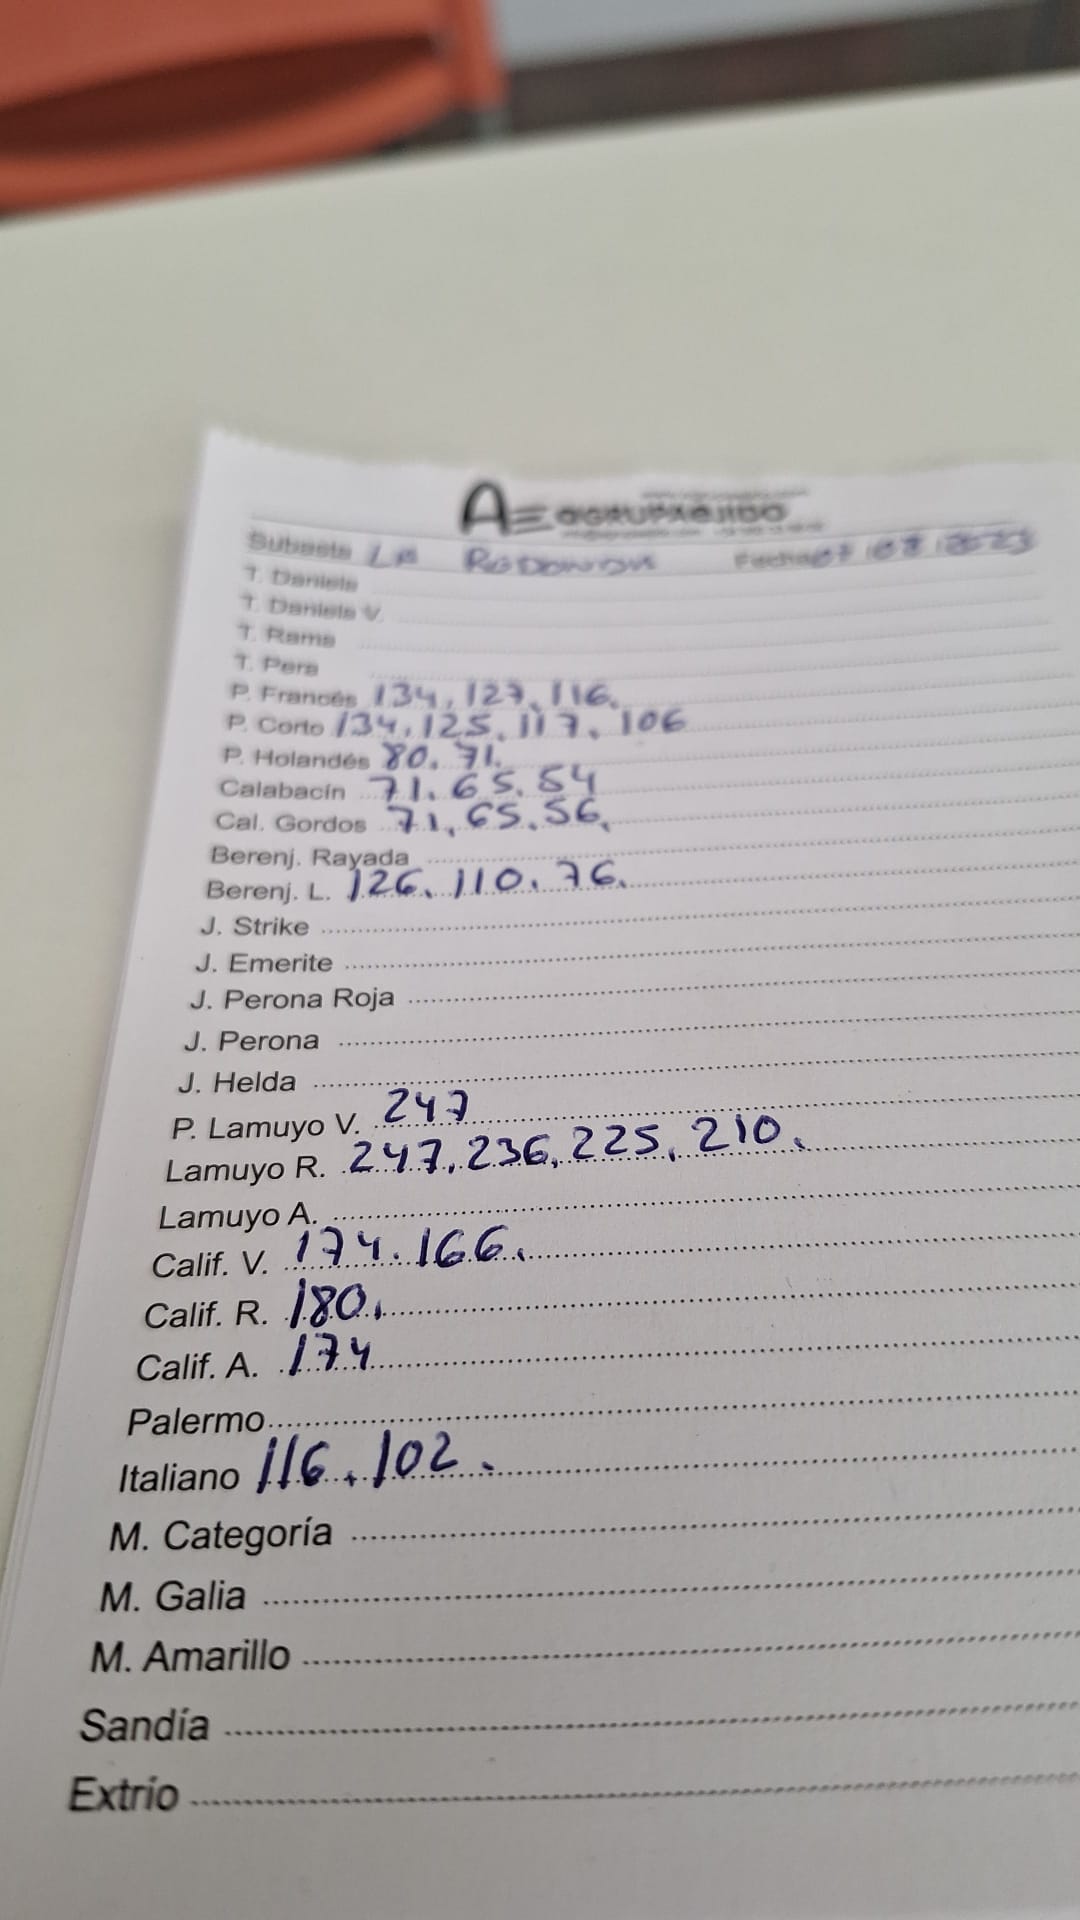 AE AGRUPAEJIDO
Subasta LA REDONDA Fecha 07/08/2023
T. Daniela
T. Daniela V.
T. Rama
T. Pera
P. Francés 134, 127, 116.
P. Corto 134, 125, 117, 106
P. Holandés 80. 71.
Calabacín 71. 65. 54
Cal. Gordos 71, 65. 56.
Berenj. Rayada
Berenj. L. 126. 110. 76.
J. Strike
J. Emerite
J. Perona Roja
J. Perona
J. Helda
P. Lamuyo V. 247
Lamuyo R. 247, 236, 225, 210.
Lamuyo A.
Calif. V. 174. 166.
Calif. R. 180.
Calif. A. 174
Palermo
Italiano 116. 102.
M. Categoría
M. Galia
M. Amarillo
Sandía
Extrío